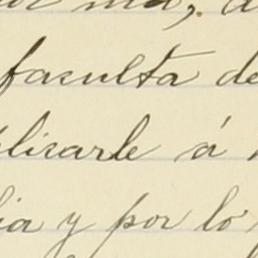 faculta de
plicarle á
ia y por lo